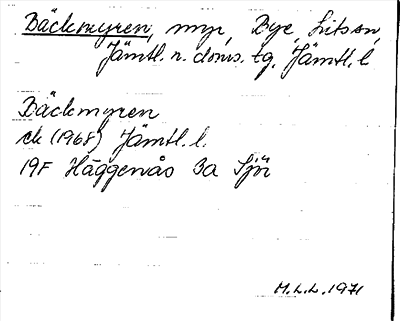 Bäckmyren, myr, Bye, Lits sn,
Jämtl. n. doms. tg, Jämtl. l
Bäckmyren
ek (1968) Jämtl. l.
19F Häggenås 3a Sjör
M.L.L. 1971